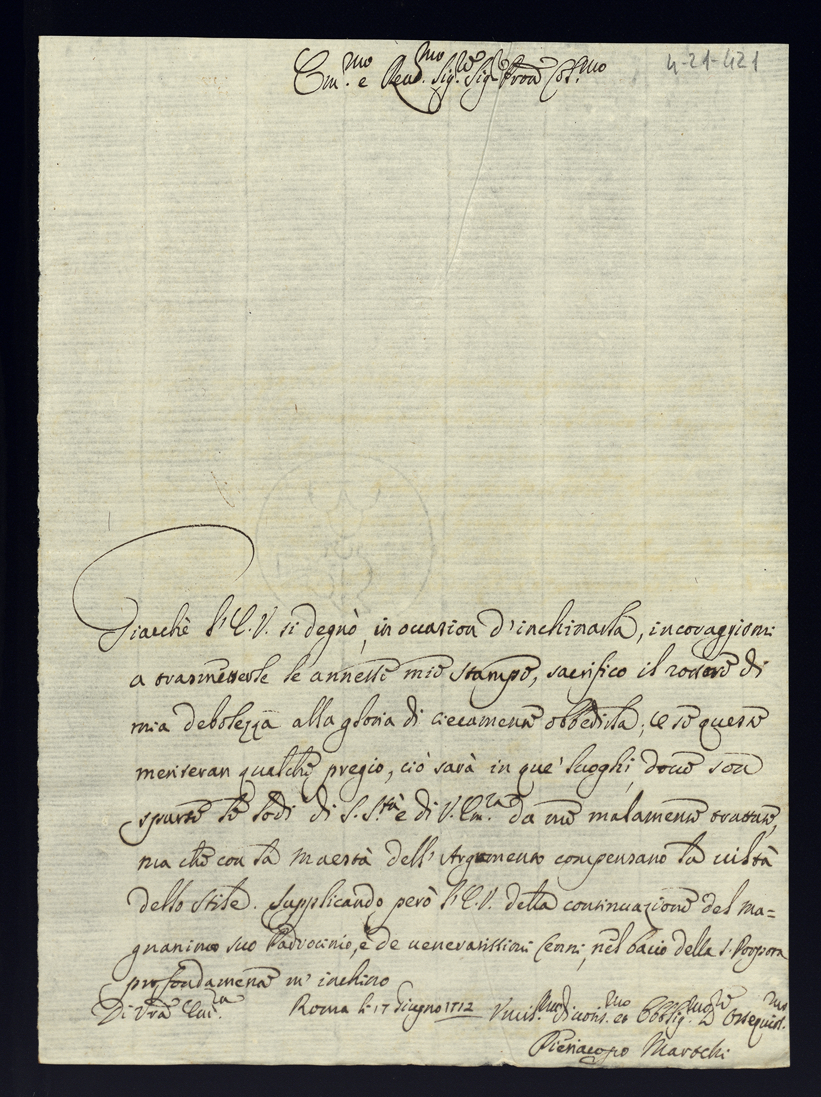 Em.mo e Rev.mo Sig.re Sig.re Pron Col.mo
4-21-421
Giacchè l'E.V. si degnò, in occasion d'inchinarla, incoraggirmi
a trasmetterle le annesse mie stampe, sacrifico il rossore di
mia debolezza alla gloria di ciecamente obbedirla; e se queste
meriteran qualche pregio, ciò sarà in que' luoghi, dove son
sparse le lodi di S. S.tà e di V. Em.za da me malamente trattate,
ma che con la maestà dell'Argomento compensano la viltà
dello stile. Supplicando però l'E.V. della continuazione del ma=
gnanimo suo Padrocinio, e de veneratissimi Cenni, nel bacio della S. Porpora
profondamente m'inchino
Di Vra Em.za
Roma li 17 Giugno 1712
Umil.mo Divotis.mo et Obblig.mo Ser.re Ossequios.mo
Pieriacopo Martelli